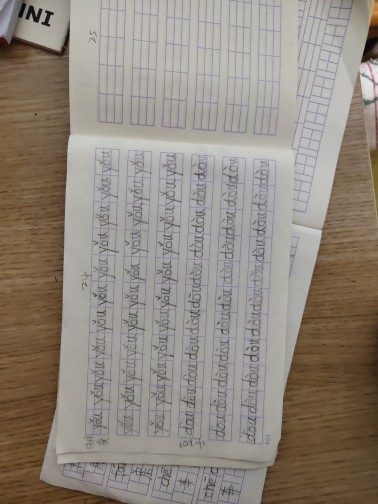 25
24
yǒu yǒu yǒu yǒu yǒu yǒu yǒu yǒu yǒu yǒu yǒu yǒu
yǒu yǒu yǒu yǒu yǒu yǒu yǒu yǒu yǒu yǒu yǒu yǒu
yǒu yǒu yǒu yǒu yǒu yǒu yǒu yǒu yǒu yǒu yǒu yǒu
dòu dòu dòu dòu dòu dòu dòu dòu dòu dòu dòu dòu
dòu dòu dòu dòu dòu dòu dòu dòu dòu dòu dòu dòu
dòu dòu dòu dòu dòu dòu dòu dòu dòu dòu dòu dòu